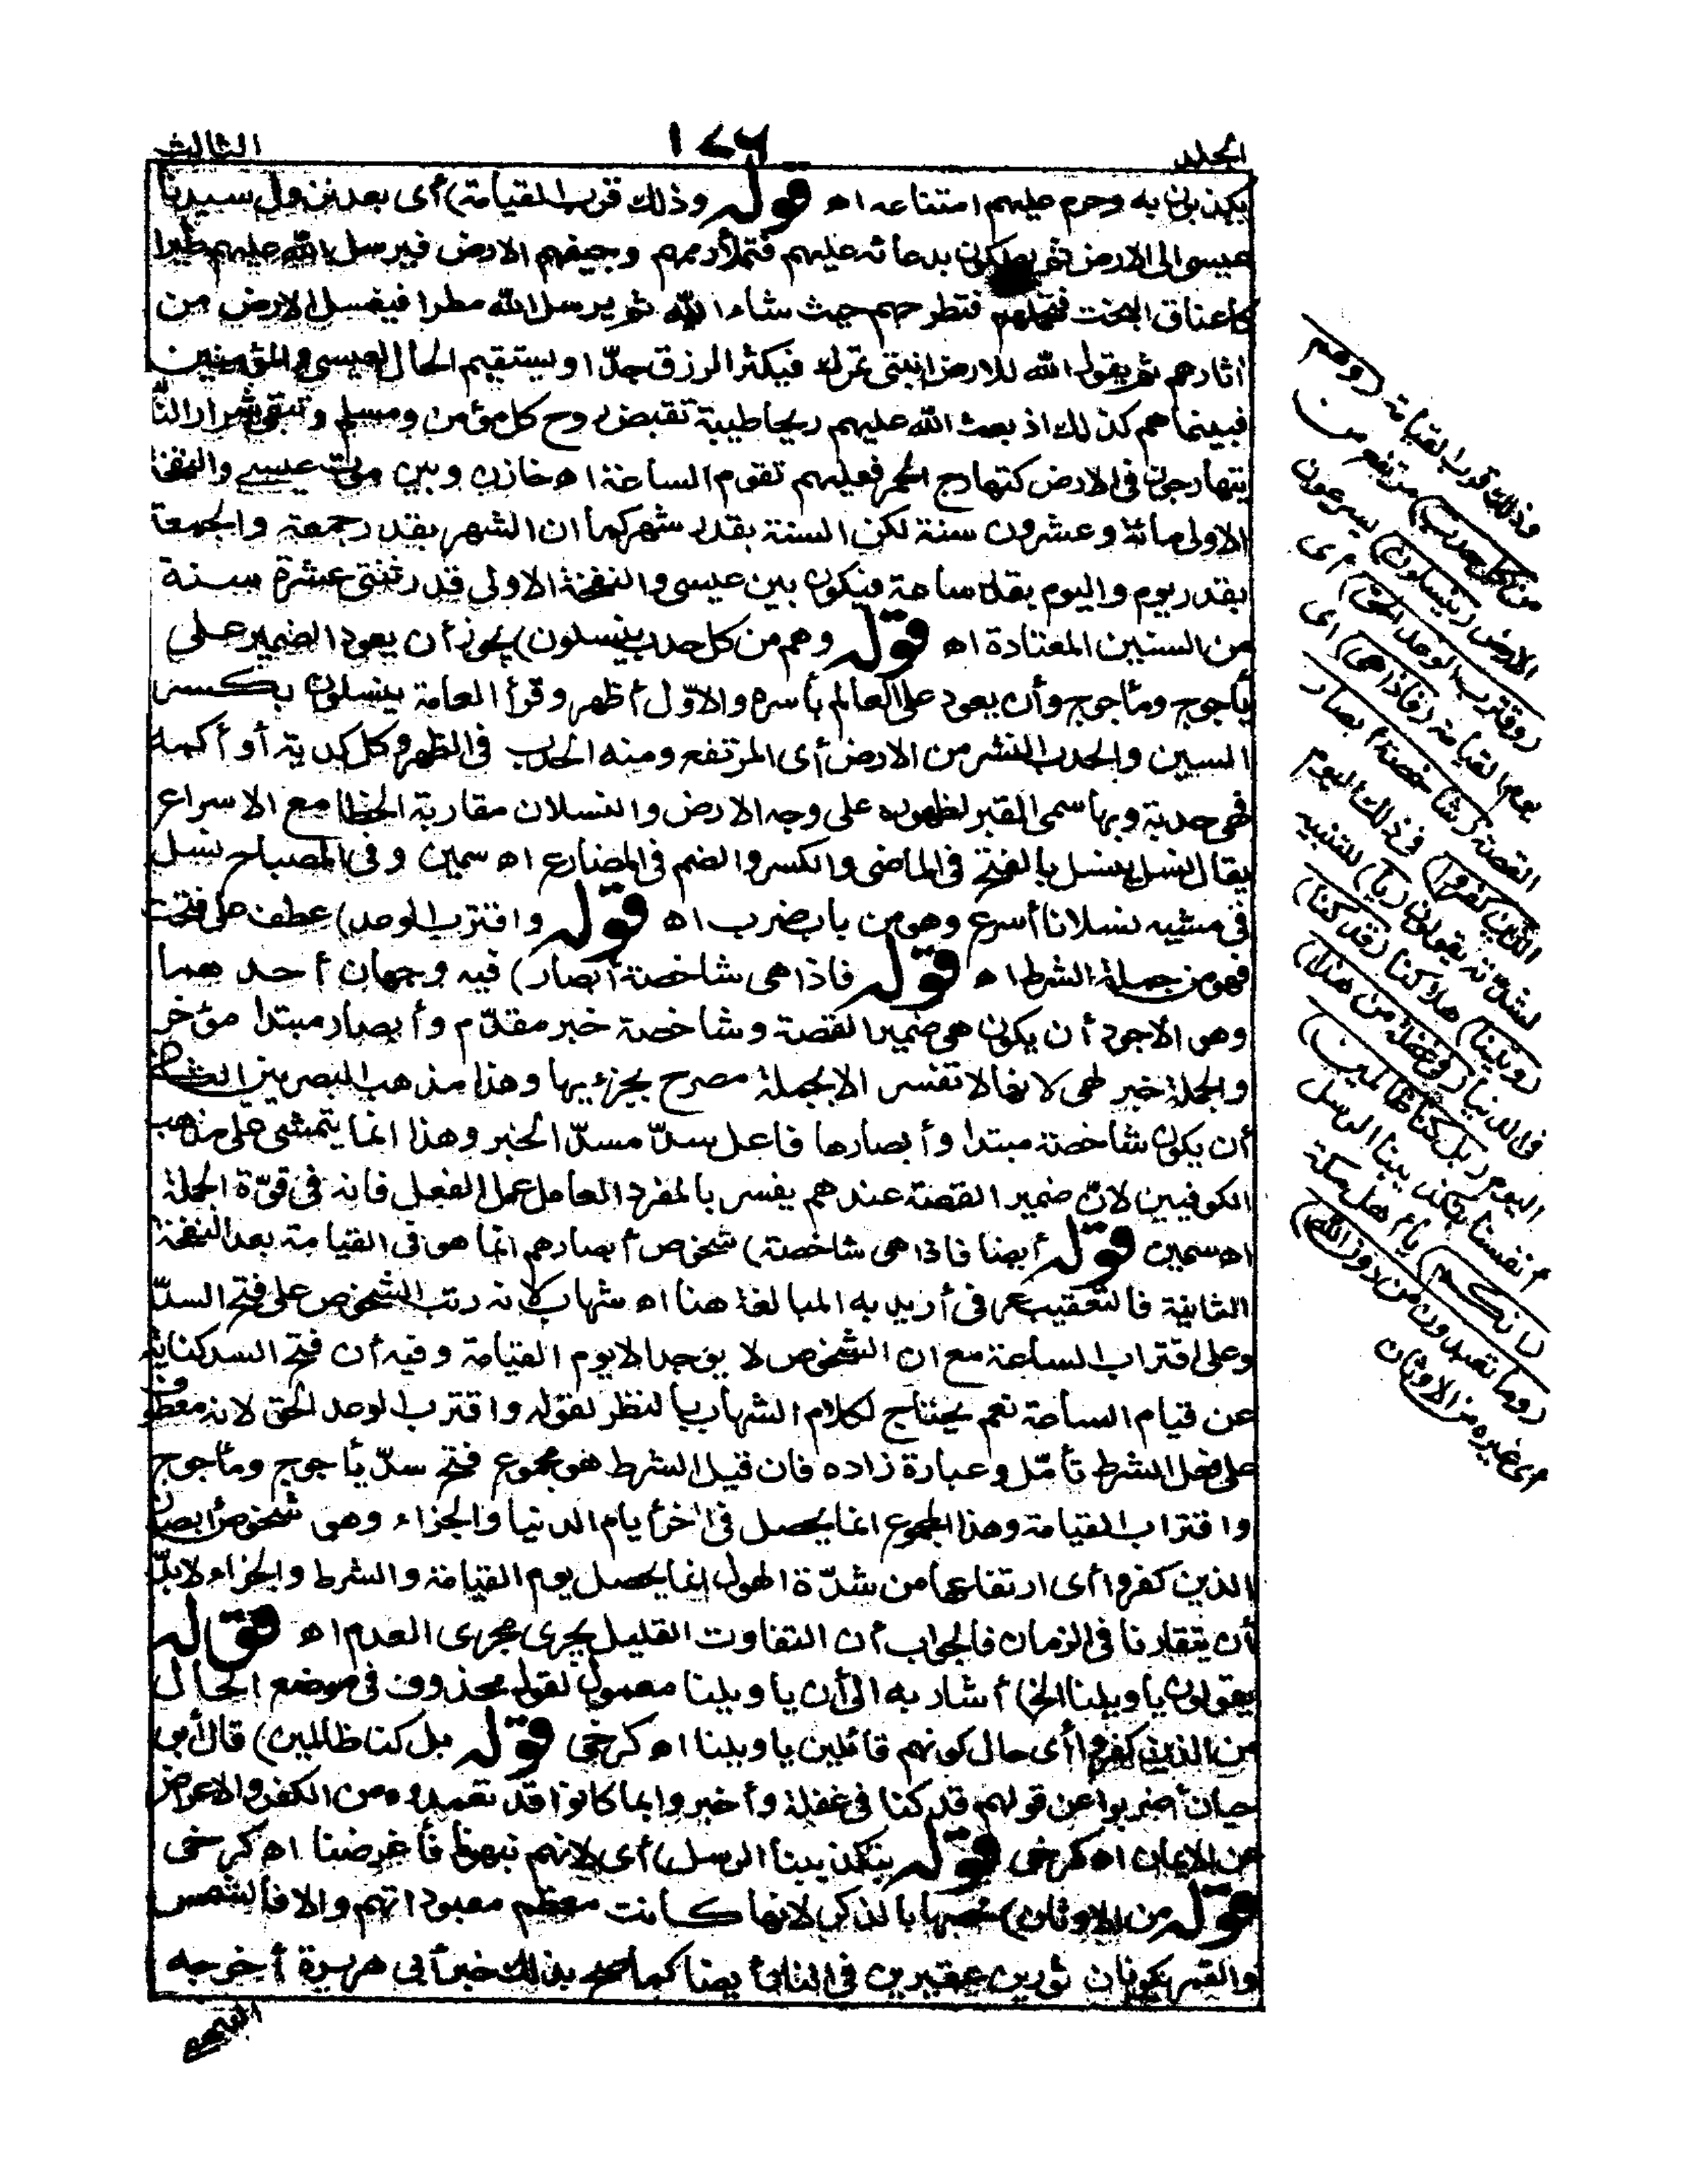 الجلد
١٤٦
الثالث
يكذبون به وحرم عليهم امتناعه اه قوله وذلك قرب القيامة) أى بعد نزول سيدنا
عيسى الى الارض ثم يهلكون بدعائه عليهم فتملأ رممهم وجيفهم الارض فيرسل الله عليهم طيرا
كاعناق البخت فتحملهم فتطرحهم حيث شاء الله ثم يرسل الله مطرا فيغسل الارض من
اثارهم ثم يقول الله للارض انبتى ثمرك فيكثر الرزق جدّا ويستقيم الحال لعيسى والمؤمنين
فبينما هم كذلك اذ بعث الله عليهم ريحا طيبة تقبض روح كل مؤمن ومسلم وتبقى شرار النا
يتهارجون فى الارض كتهارج الحمر فعليهم تقوم الساعة اه خازن وبين موت عيسى والنفخة
الاولى مائة وعشرون سنة لكن السنة بقدر شهر كما ان الشهر بقدر جمعة والجمعة
بقدر يوم واليوم بقدر ساعة فيكون بين عيسى والنفخة الاولى قدر ثنتى عشرة سنة
من السنين المعتادة اه قوله وهم من كل حدب ينسلون) يجوز أن يعود الضمير على
يأجوج ومأجوج وأن يعود على العالم بأسره والاوّل أظهر وقرأ العامة ينسلون بكسر
السين والحدب النشز من الارض أى المرتفع ومنه الحدب فى الظهر وكل كدية أو أكمة
فهى حدبة وبها سمى القبر لظهوره على وجه الارض والنسلان مقاربة الخطا مع الاسراع
يقال نسل ينسل بالفتح فى الماضى والكسر والضم فى المضارع اه سمين وفى المصباح نسل
فى مشيه نسلانا أسرع وهو من باب ضرب اه قوله واقترب الوعد) عطف على فتحت
فهو من جملة الشرط اه قوله فاذا هى شاخصة أبصار) فيه وجهان أحدهما
وهو الاجود أن يكون هى ضمير القصة وشاخصة خبر مقدّم وأبصار مبتدا مؤخر
والجملة خبر لهى لانها لا تفسر الا بجملة مصرح بجزئيها وهذا مذهب البصريين الثانى
أن يكون شاخصة مبتدا وأبصارها فاعل سدّ مسدّ الخبر وهذا انما يتمشى على مذهب
الكوفيين لانّ ضمير القصة عندهم يفسر بالمفرد العامل عمل الفعل فانه فى قوّة الجملة
اه سمين قوله أيضا فاذا هى شاخصة) شخوص أبصارهم انما هو فى القيامة بعد النفخة
الثانية فالتعقيب عرفى أريد به المبالغة هنا اه شهاب لانه رتب الشخوص على فتح السدّ
وعلى اقتراب الساعة مع ان الشخوص لا يوجد الا يوم القيامة وفيه أن فتح السد كناية
عن قيام الساعة نعم يحتاج لكلام الشهاب بالنظر لقوله واقترب الوعد الحق لانه معطوف
على فعل الشرط تأمّل وعبارة زاده فان قيل الشرط هو مجموع فتح سدّ يأجوج ومأجوج
واقتراب القيامة وهذا المجموع انما يحصل فى اخر أيام الدنيا والجزاء وهو شخوص أبصار
الذين كفروا أى ارتفاعها من شدّة الهول انما يحصل يوم القيامة والشرط والجزاء لا بدّ
أن يتقارنا فى الزمان فالجواب أن التفاوت القليل يجرى مجرى العدم اه قوله
يقولون يا ويلنا الخ) أشار به الى أن يا ويلنا معمول لقول محذوف فى موضع الحال
من الذين كفروا أى حال كونهم قائلين يا ويلنا اه كرخى قوله بل كنا ظالمين) قال أبو
حيان أضربوا عن قولهم قد كنا فى غفلة وأخبروا بما كانوا قد تعمدوه من الكفر والاعراض
عن الايمان اه كرخى قوله بتكذيبنا الرسل) أى لانهم نبهونا فأعرضنا اه كرخى
قوله من الاوثان) خصها بالذكر لانها كانت معظم معبوداتهم والا فالشمس
والقمر يكونان ثورين عقيرين فى النار أيضا كما صح بذلك خبر أبى هريرة أخرجه
وذلك قرب القيامة (وهم
من كل حدب) مرتفع من
الارض (ينسلون) يسرعون
(واقترب الوعد الحق) أى
يوم القيامة (فاذا هى) اى
القصة (شاخصة أبصار
الذين كفروا) فى ذلك اليوم
لشدّته يقولون (يا) للتنبيه
(ويلنا) هلاكنا (قد كنا)
فى الدنيا (فى غفلة من هذا)
اليوم (بل كنا ظالمين)
أنفسنا بتكذيبنا الرسل
(انكم) يا أهل مكة
(وما تعبدون من دون الله)
أى غيره من الاوثان